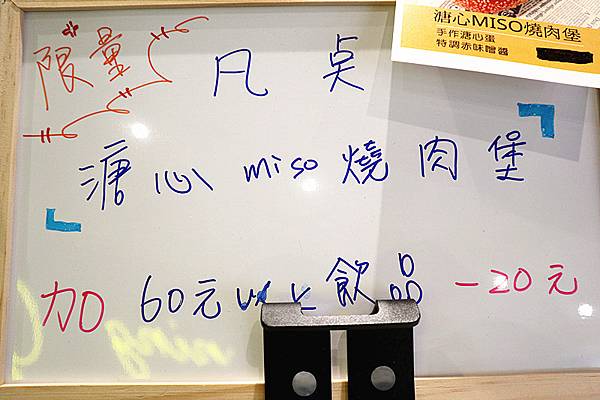 溏心MISO燒肉堡
手作溏心蛋
特調赤味噌醬
限量
凡点
溏心miso燒肉堡
加 60元 飲品 -20元